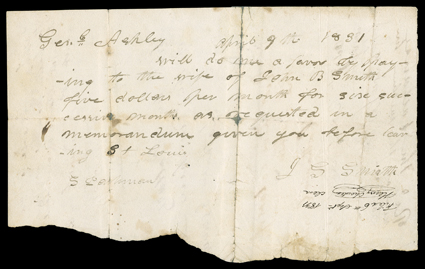 Genl Ashley April 9th 1831
will do me a favor by pay-
-ing to the wife of John B Smith
five dollars per month for six suc-
cessive months as requested in a
memorandum given you before leav-
ing St Louis
J S Smith